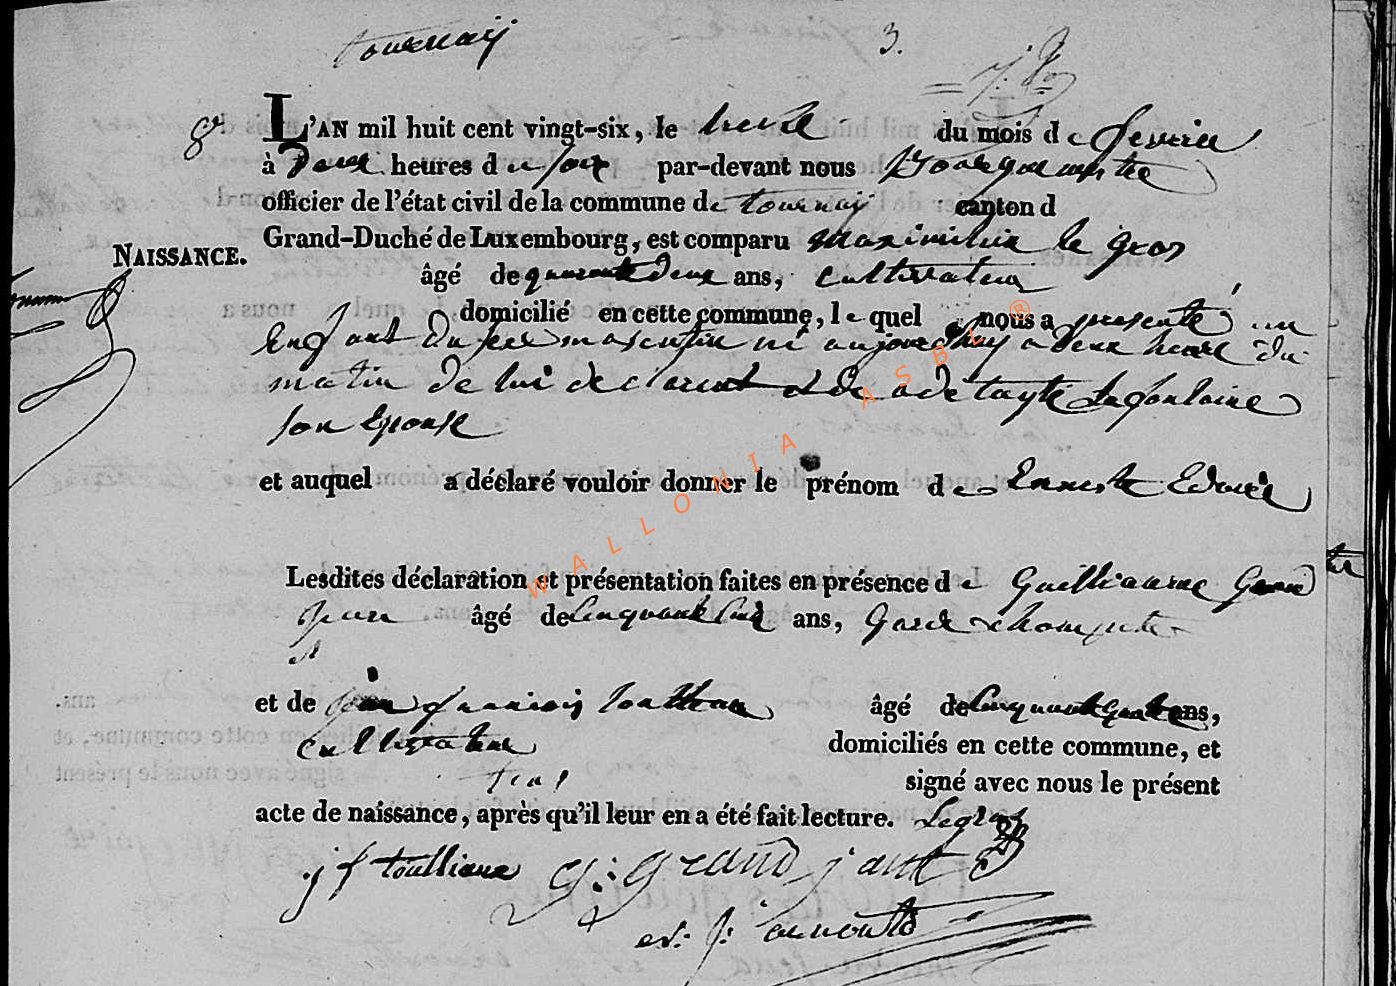 tournay
3.
8e
L'AN mil huit cent vingt-six, le treize du mois de fevrier
à deux heures du soir par-devant nous Bourguemestre
officier de l'état civil de la commune de tournay canton d
Grand-Duché de Luxembourg, est comparu maximilien le gros
NAISSANCE.
âgé de quarante deux ans, cultivateur
domicilié en cette commune, le quel nous a presenté un
Enfant du sexe masculin né aujourdhuy a deux heure du
matin de lui declarant et de adelayte Lafontaine
son Epouse
et auquel a déclaré vouloir donner le prénom de Erneste
Lesdites déclaration et présentation faites en présence de Guilliaume Grand
jean âgé de Cinquante Cinq ans, Garde champetre
et de jean francois toulliaux âgé de Cinquante quatre ans,
cultivateur domiciliés en cette commune, et
signé avec nous le présent
acte de naissance, après qu'il leur en a été fait lecture. Legros
j f toulliaux G: Grand jant
WALLONIA ASBL ®